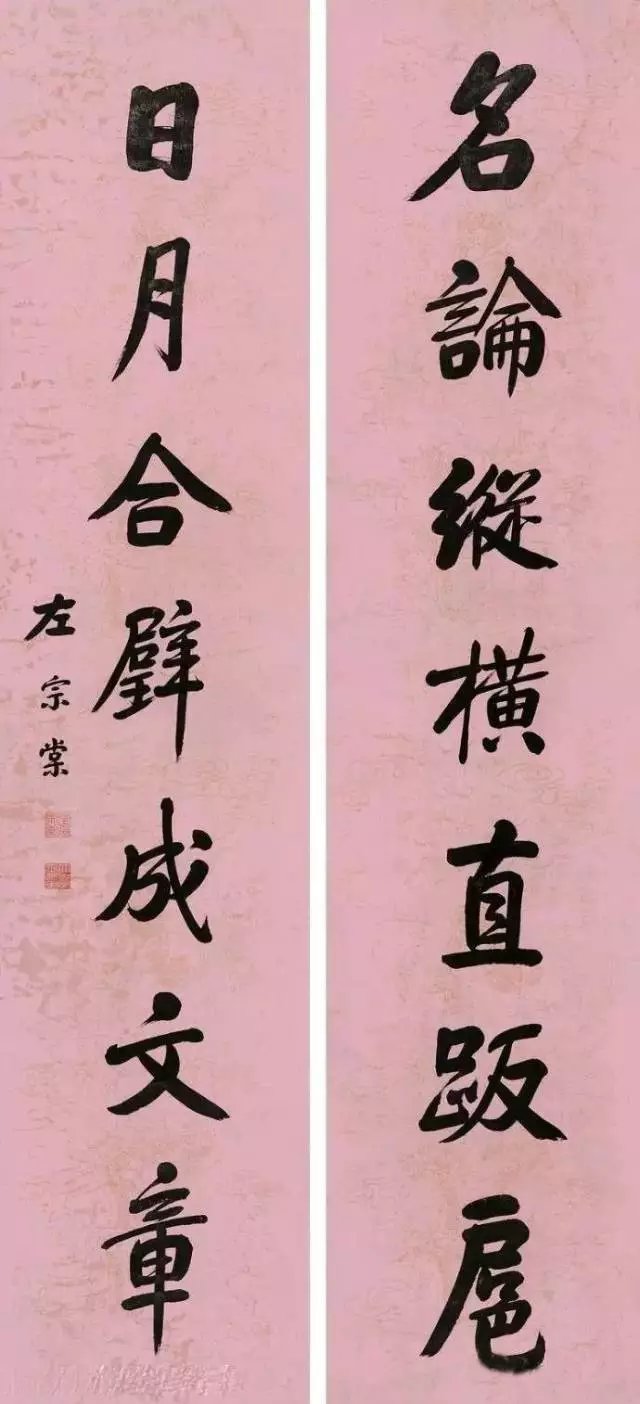 名論縱橫直跋扈
日月合璧成文章
左宗棠